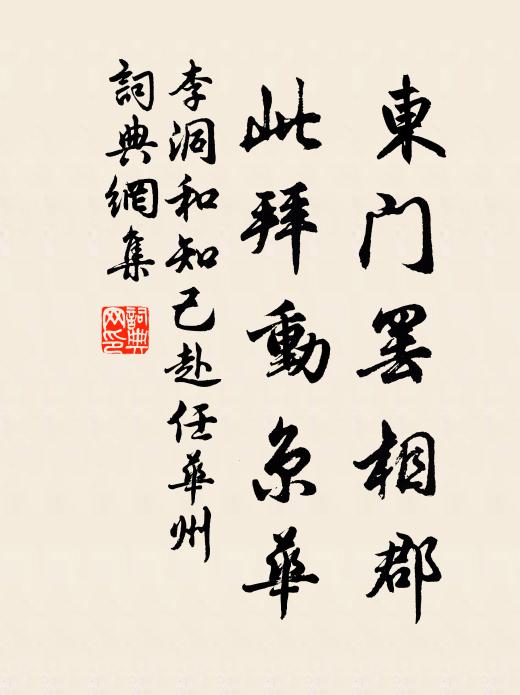 東門罷相郡
此拜動京華
李洞和知己赴任華州
詞典網集
詞典网印